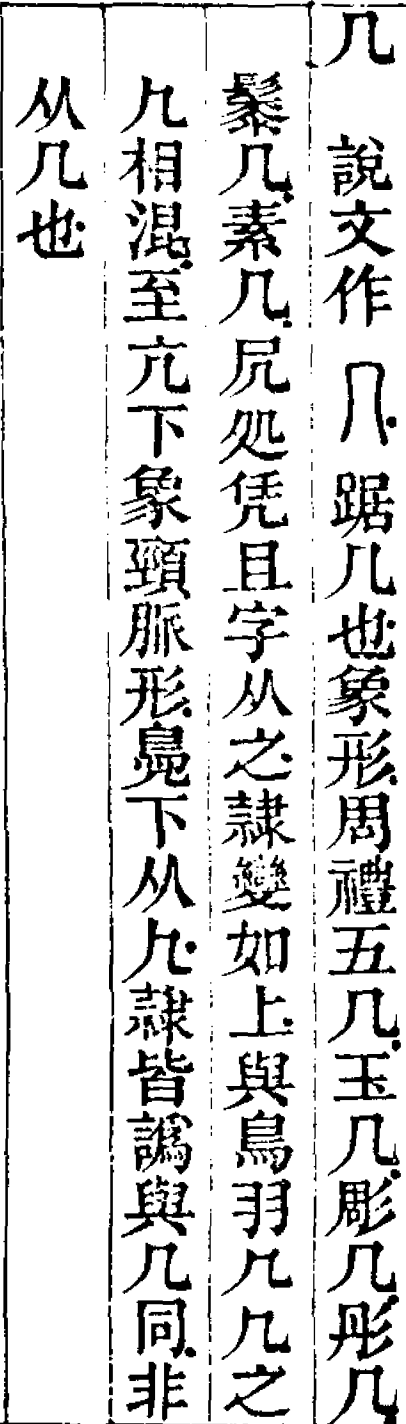 几　說文作𠘧踞几也象形周禮五几玉几彫几彤几
鬃几素几凥処凭且字从之隷變如上與鳥羽𠘧𠘧之
𠘧相混至亢下象頸脈形鳧下从𠘧隷皆譌與几同非
从几也